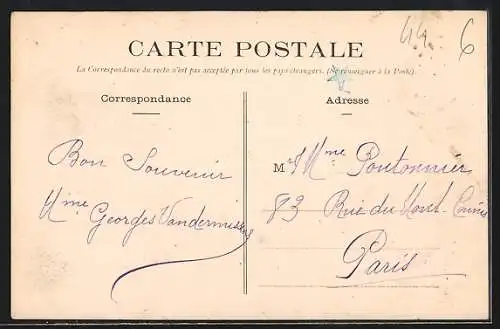 44. 6
CARTE POSTALE
La Correspondance du recto n'est pas acceptée par tous les pays étrangers. (Se renseigner à la Poste)
Correspondance
Adresse
Bon Souvenir
Mme Georges
M et Mme Pontonnier
83 Rue du Mont-Cenis
Paris